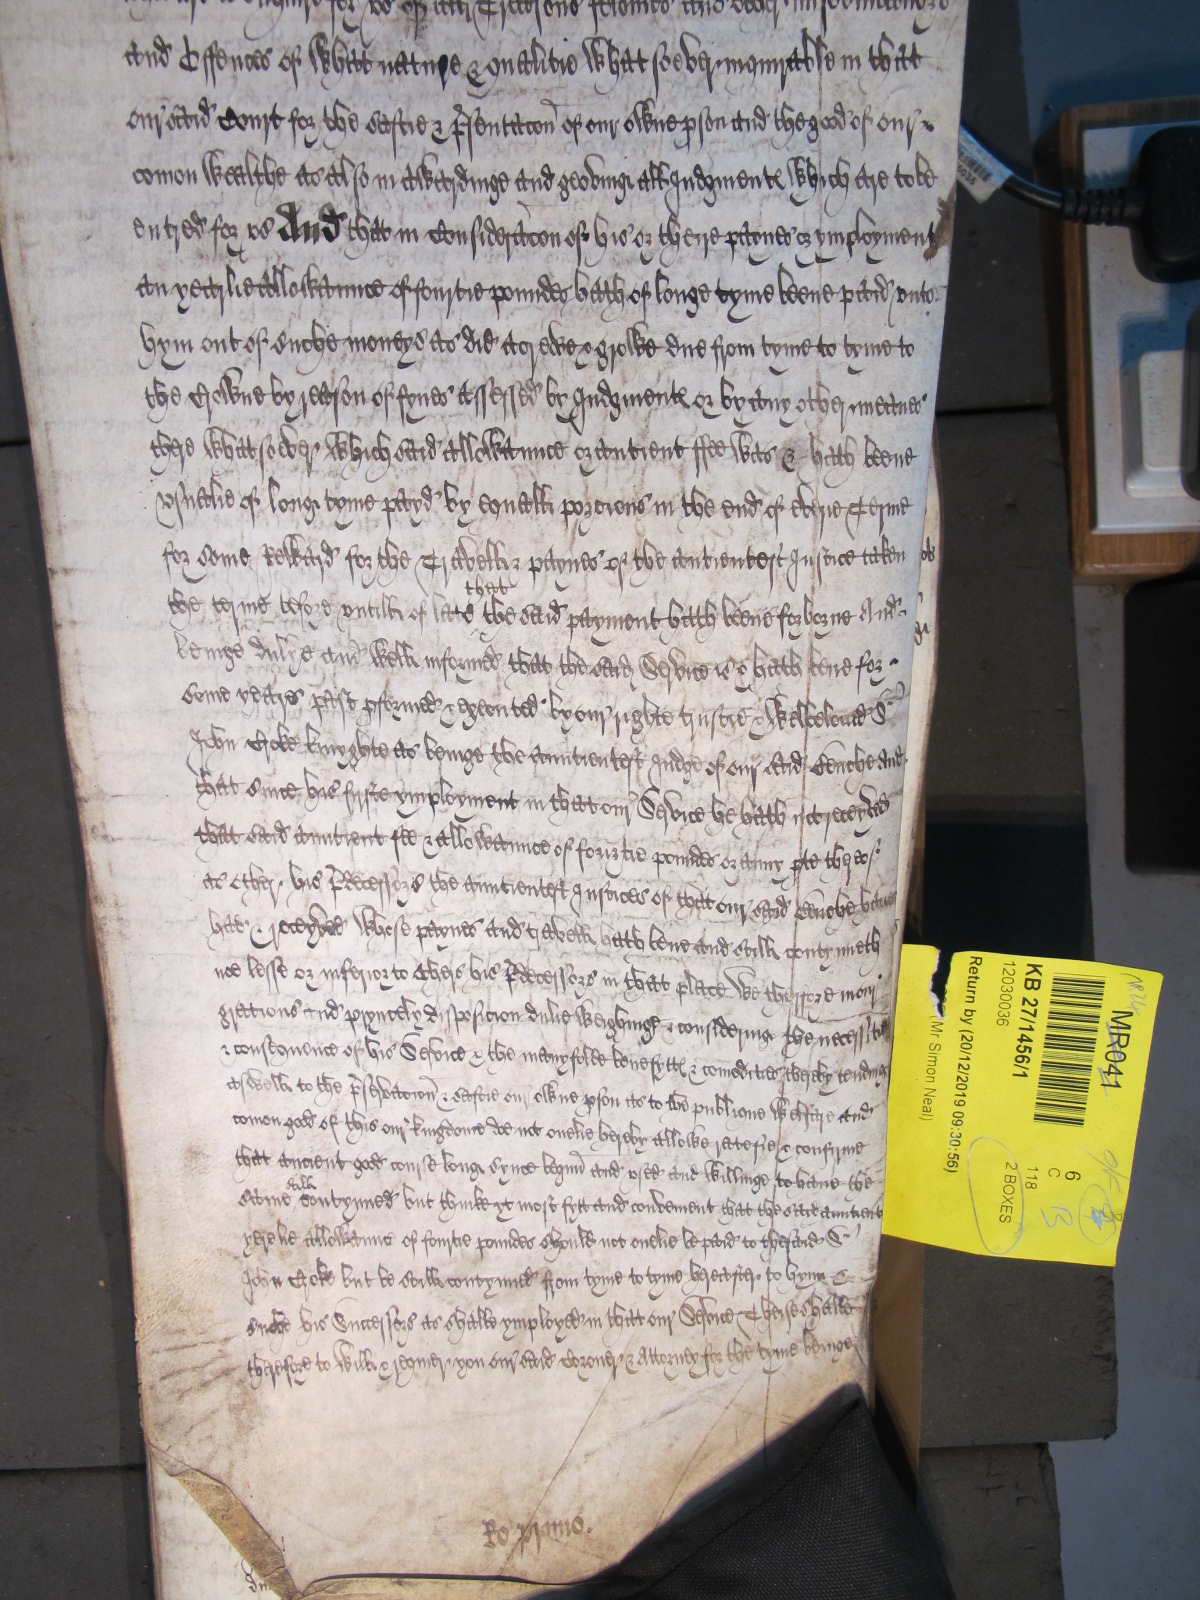 for us of all Treasons felonies and other misdemeanors
and Offences of What nature & qualitie What soever inquirable in that
our said Court for the saftie & p̃servacon of our owne pson and the good of our
comon Wealthe as also in awardinge and geving all Judgmentℯ Which are to be
entred for us And that in consideracon of his or there paynes & ymployment
an yearlie allowaunce of fourtie poundes hath of longe tyme beene paid unto
hym out of suche moneys as did acrewe & growe due from tyme to tyme to
the Crowne by reason of fynes assessed by Judgmentℯ or by any other meanes
there Whatsoever Which said allowaunce or auntient ffee Was & hath beene
usualie of long tyme payd by equall porcions in the end of everie Terme
for some reward for the Travell & paynes of the auntientest Justice taken
the terme before untill of late that the said payment hath beene forborne And
beinge dulye and Well informed that the said Service is & hath bene for
some yeares past pformed & executed by our righte trustie & Welbeloved Sr
John Croke knyghte as beinge the auntientest Judge of our said Benche and
that since his firste ymployment in that our Service he hath not receyved
that said auntient fee & allowaunce of fourtie poundes or anie pte therof
as other his p̃decessors the auntientest Justices of that our said Benche have
had & receyved Whose paynes and travell hath bene and still contynueth
noe lesse or inferior to others his p̃decessors in that place We therfore
and pryncely disposicion dulie Weighinge & considering the necessitie
& consequence of his Service & the manyfolde benefyttℯ & comodities therby tending
aswell to the p̃servacown & saftie our owne pson as to the publique Welfare and
comon good of this our kingdome doe not onelie hereby allowe ratefie & confirme
that ancient good course longe synce begun and used and Willinge to have the
same still contynued but thinke yt most fytt and convenient that the said auntient
yerelie allowaunce of fourtie poundes should not onelie be paid to thesaid Sr
John Croke but be still contynued from tyme to tyme hereafter to hym &
suche his Successors as shalbe ymployed in that our Service These shalbe
therefore to Will & require you our said Coroner & Attorney for the tyme beinge
Ro primo.
MR041
KB 27/1456/1
12030036
Return by (20/12/2019 09:30:56)
Mr Simon Neal)
6
C
118
2 BOXES